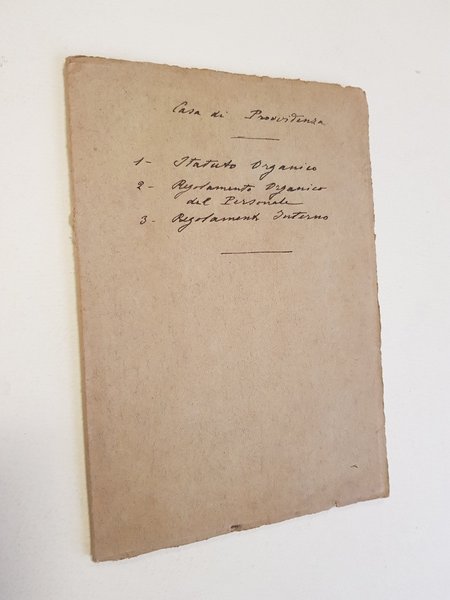 Casa di Provvidenza
1- Statuto Organico
2- Regolamento Organico
del Personale
3- Regolamento Interno